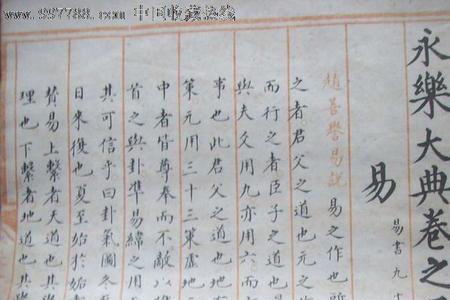 www.997788.com 中国收藏热线
永樂大典卷之
易
易書九十
趙善譽易説 易之作也
之者君父之道也元之
而行之者臣子之道也
與夫爻用九亦用六而
事也此君父之道也地
策元用三十三策虛地
中者皆尊奉而不敢
首之與卦準易緯之用
其可信乎曰卦氣圖冬
日來復也夏至始於姤
賛易上繫者天道也其
理也下繫者地道也其